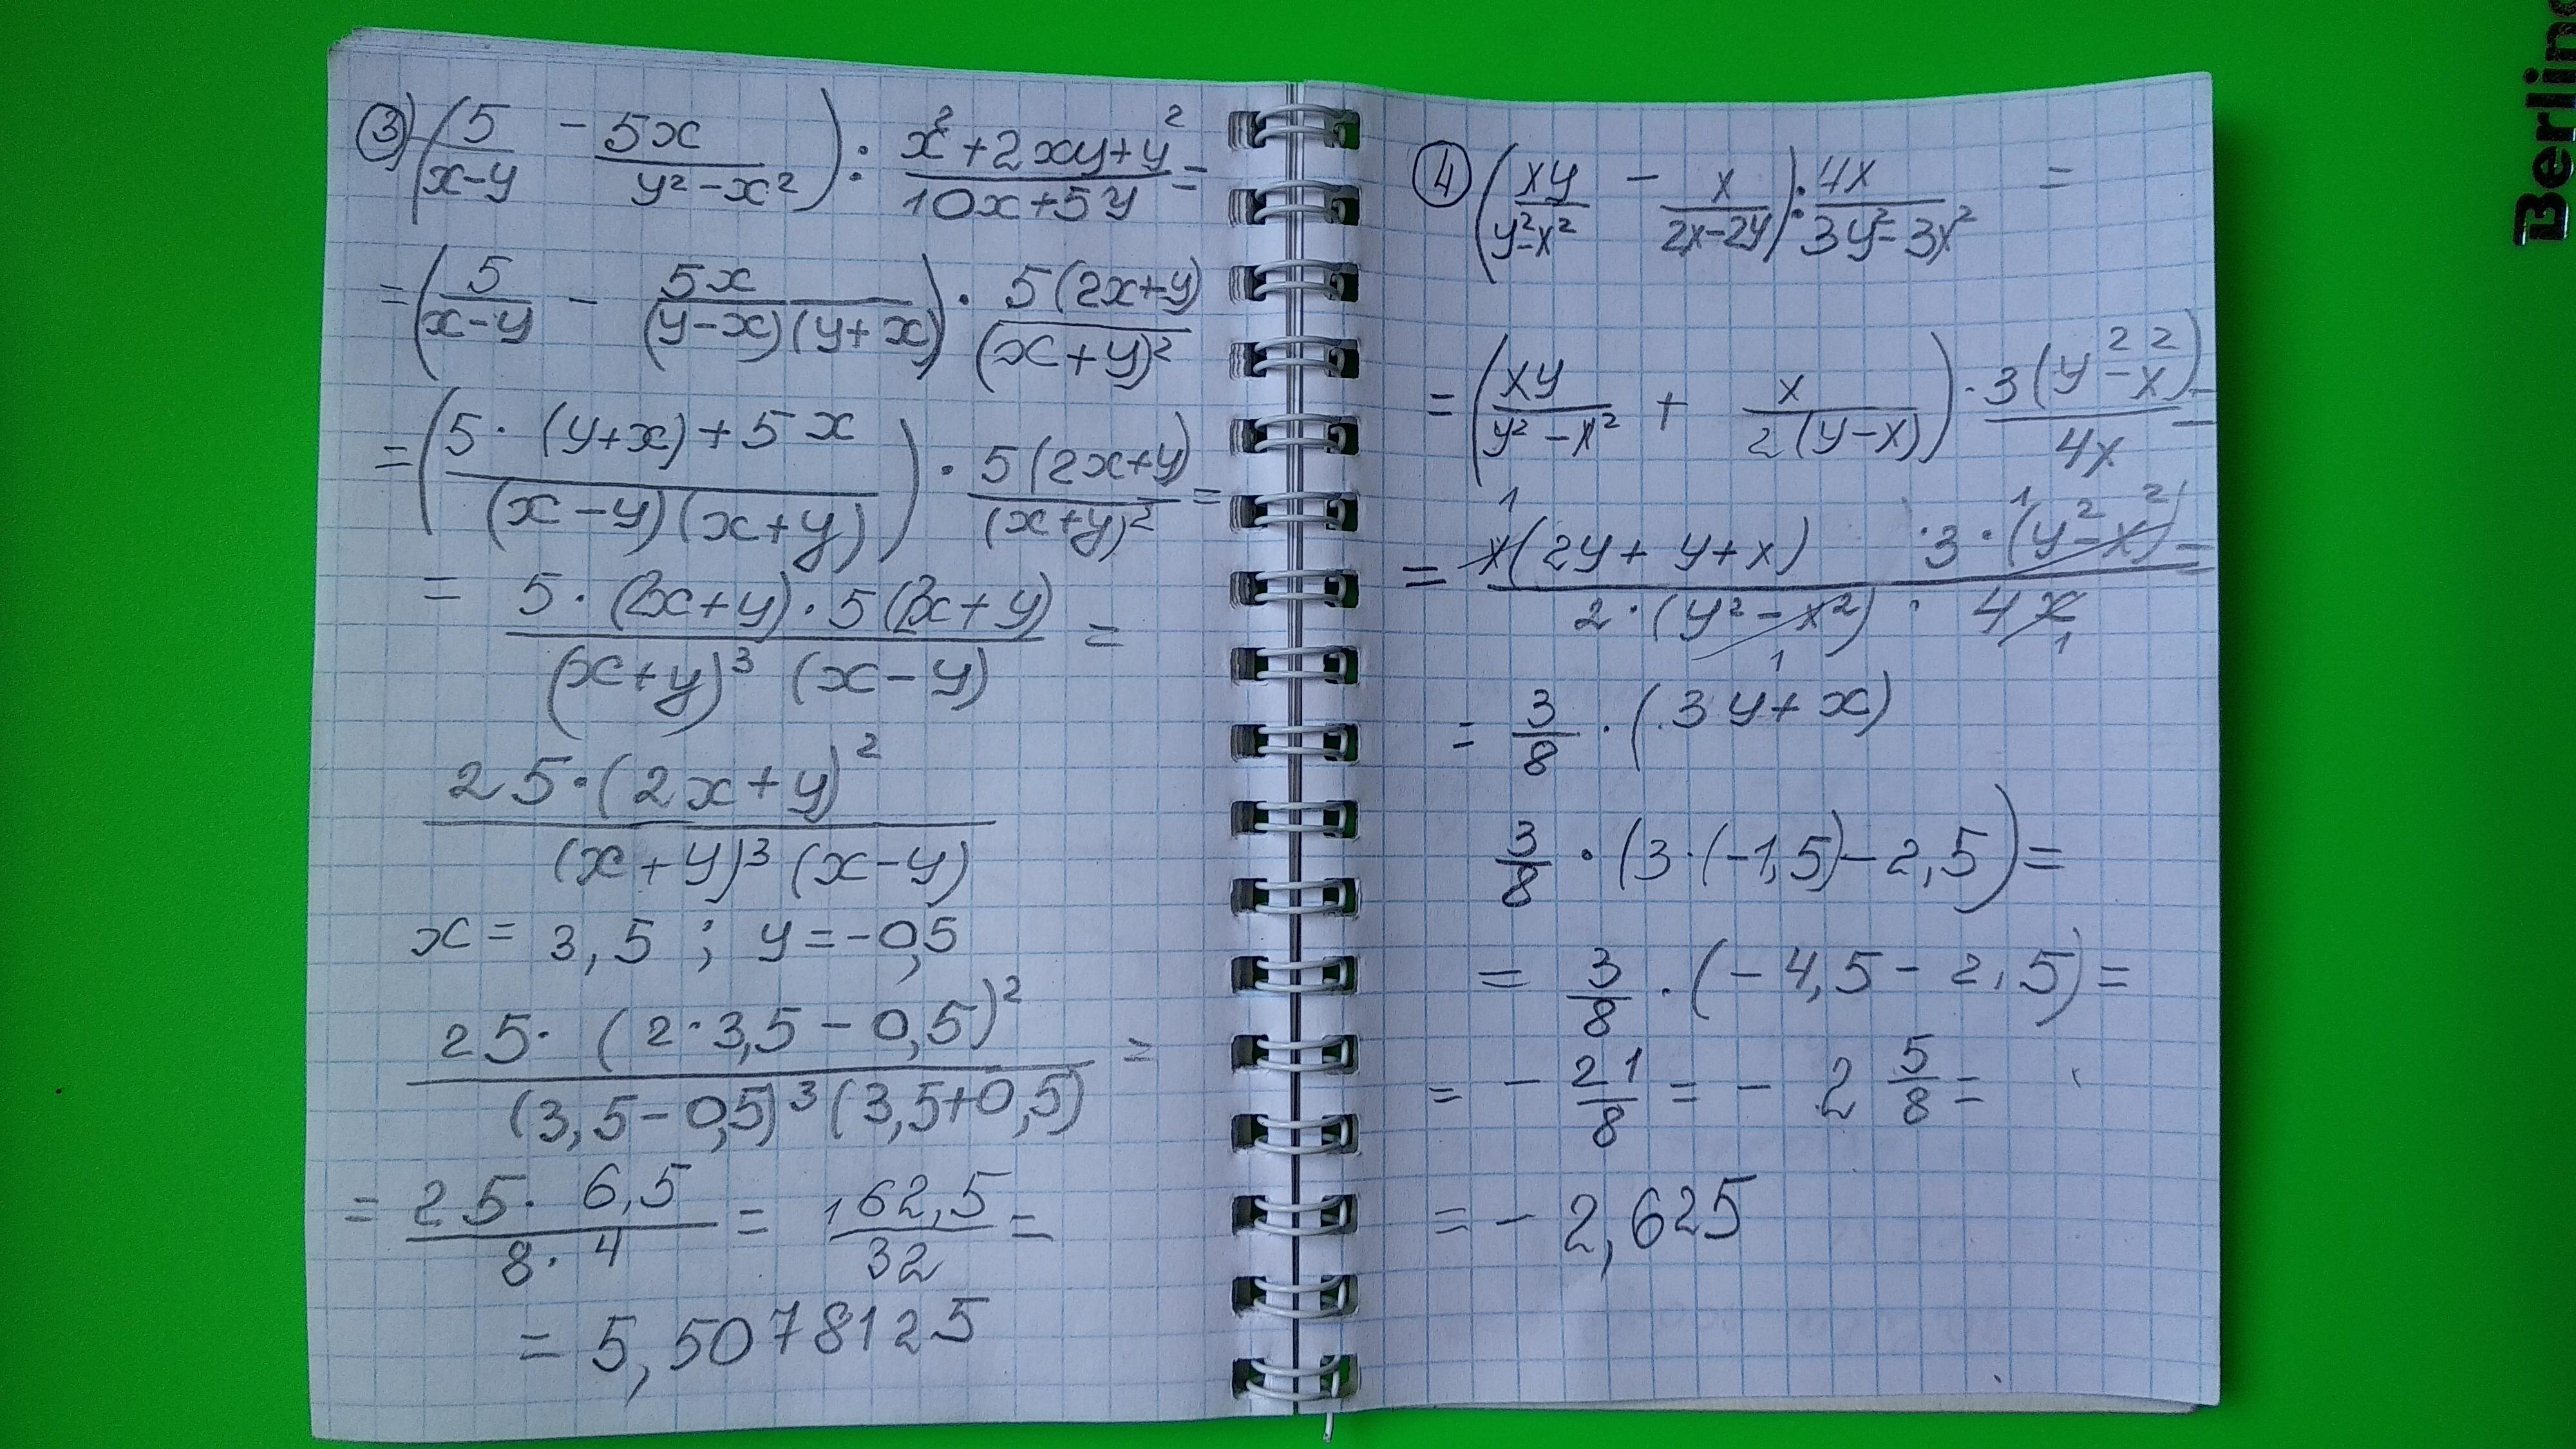 ③ (5/(x-y) - 5x/(y²-x²)) : (x²+2xy+y²)/(10x+5y) =
= (5/(x-y) - 5x/((y-x)(y+x))) · 5(2x+y)/(x+y)²
= ((5·(y+x)+5x)/((x-y)(x+y))) · 5(2x+y)/(x+y)² =
= (5·(2x+y)·5(2x+y))/((x+y)³(x-y)) =
25·(2x+y)²/((x+y)³(x-y))
x = 3,5 ; y = -0,5
25·(2·3,5-0,5)²/((3,5-0,5)³(3,5+0,5)) =
= 25·6,5/(8·4) = 162,5/32 =
= 5,5078125
④ (xy/(y²-x²) - x/(2x-2y)) : 4x/(3y²-3x²) =
= (xy/(y²-x²) + x/(2(y-x))) · 3(y²-x²)/4x =
= (x(2y+y+x)·3·(y²-x²))/(2·(y²-x²)·4x) =
= 3/8·(3y+x)
3/8·(3·(-1,5)-2,5) =
= 3/8·(-4,5-2,5) =
= -21/8 = -2 5/8 =
= -2,625
Berling